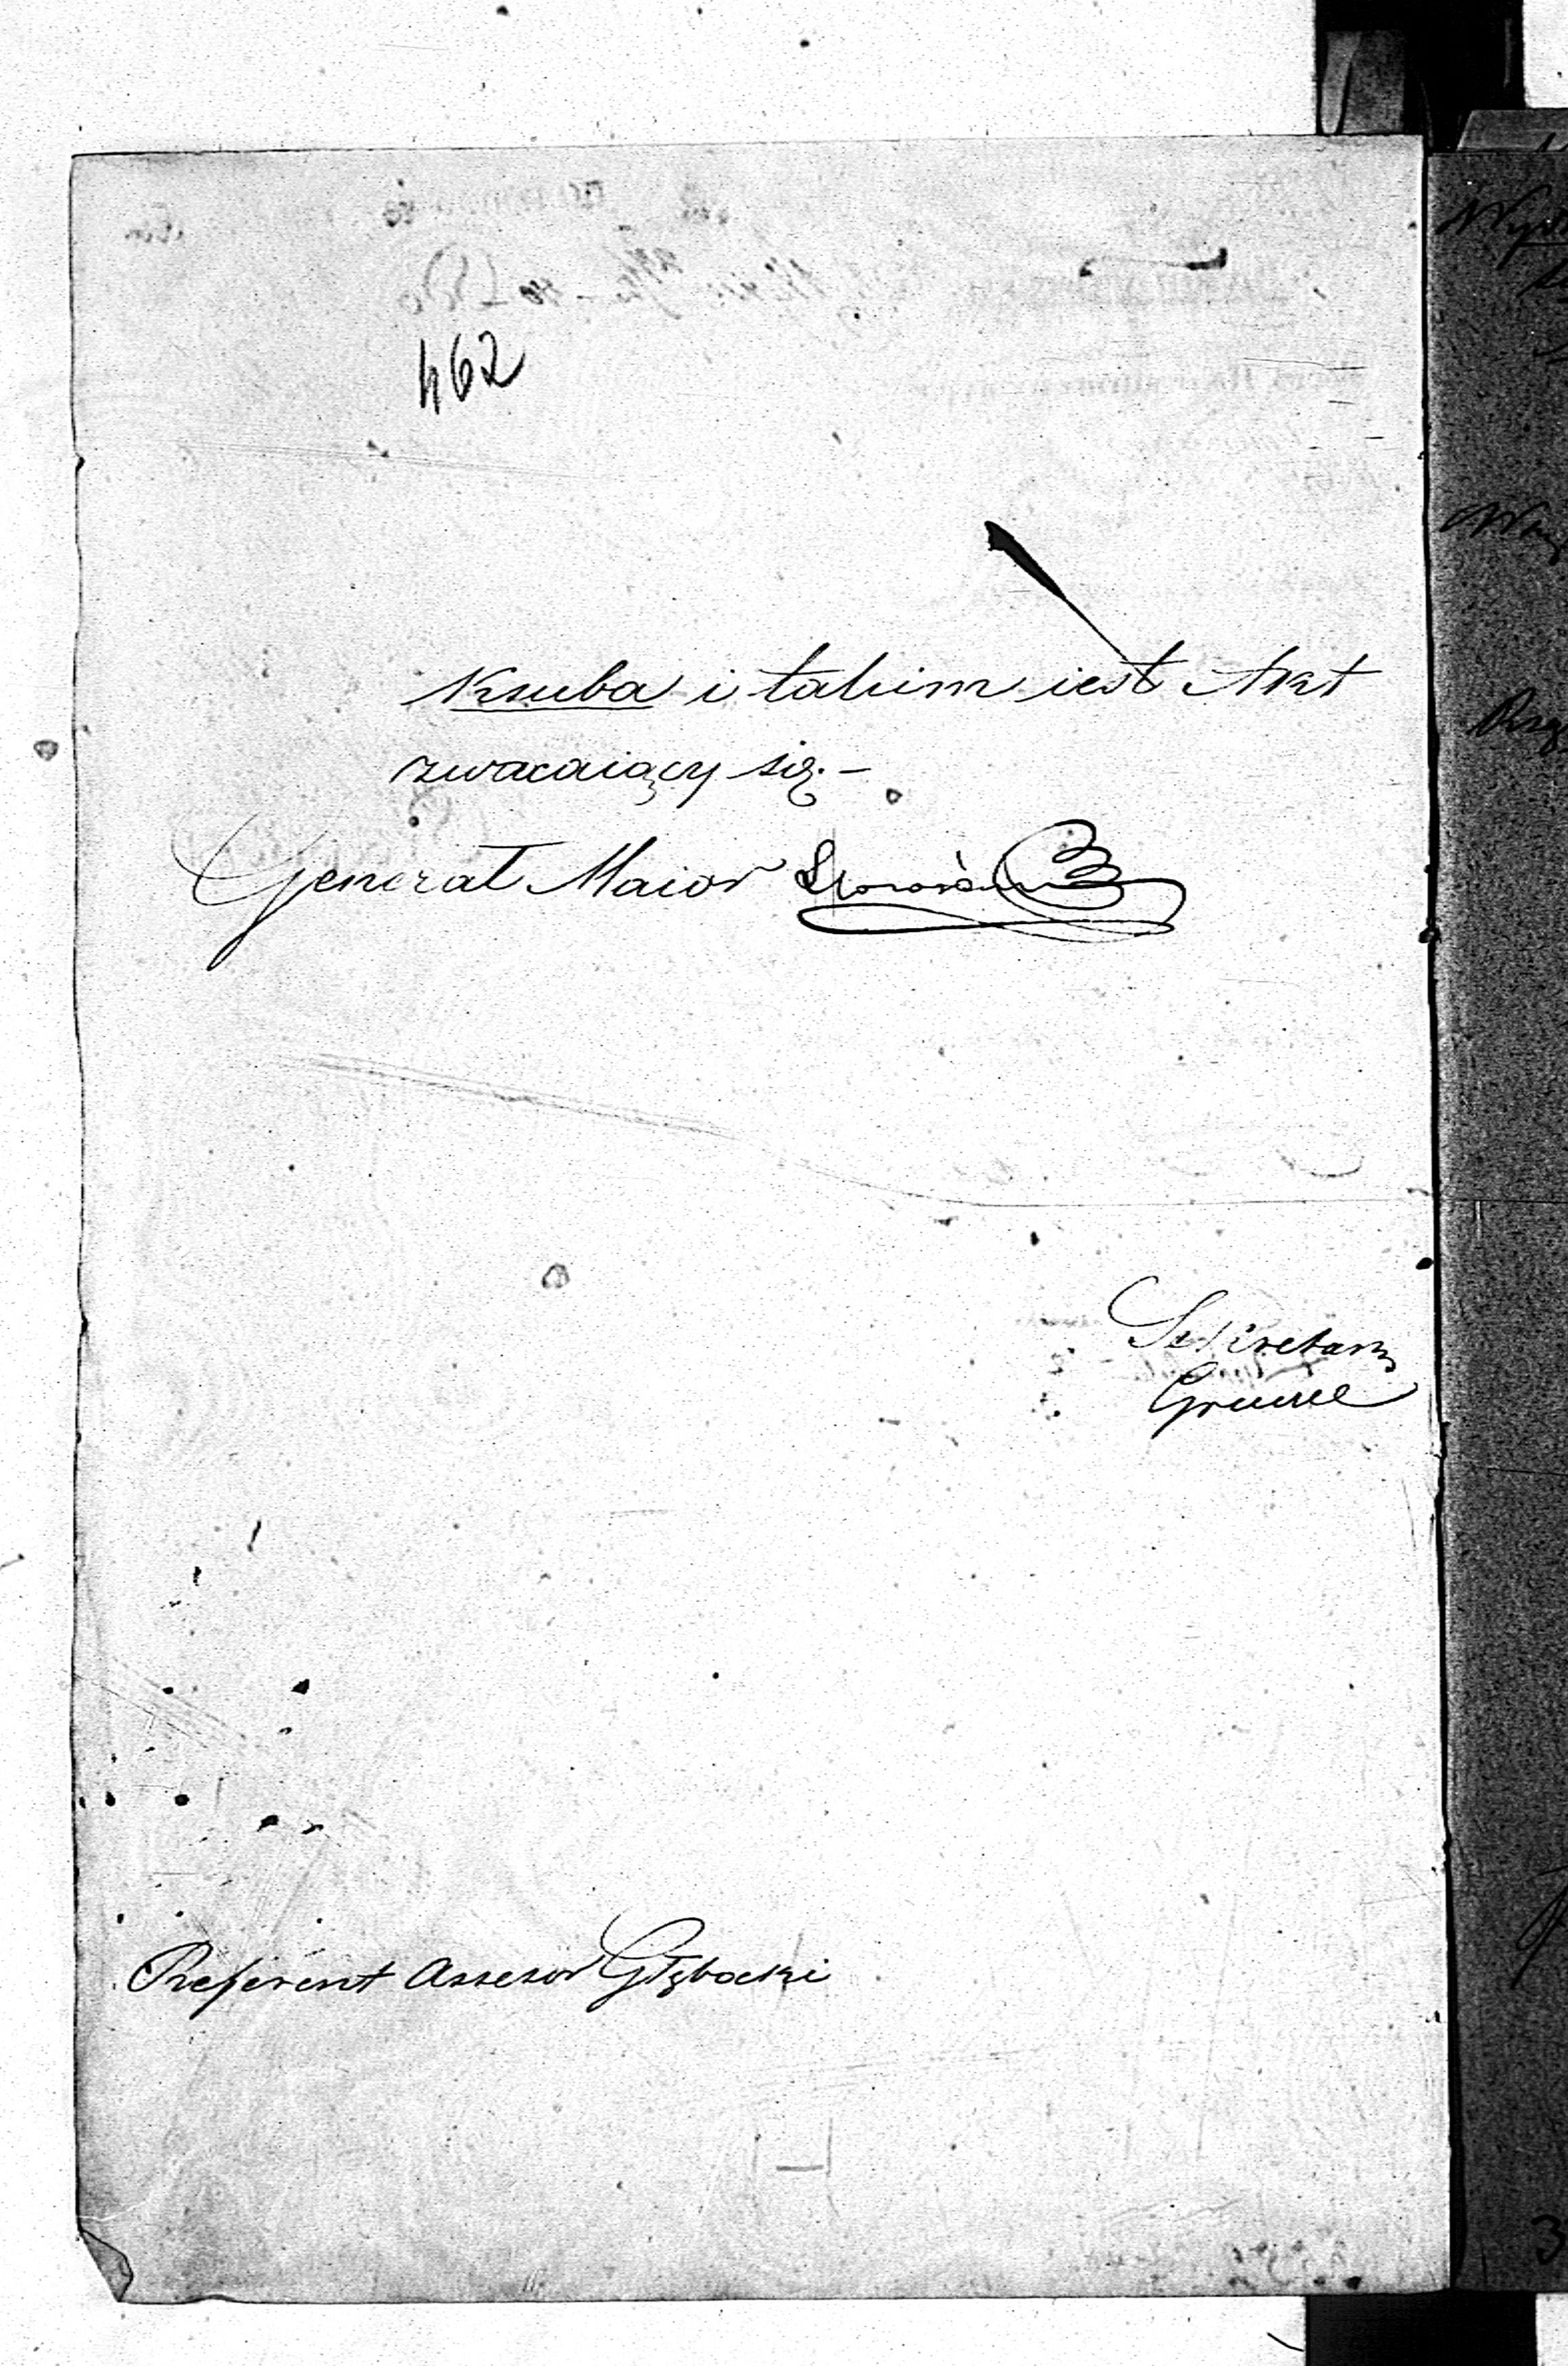 462
Ksuba i takim iest Akt
zwracaiący się. –
Generał Maior
Sekretarz
Referent Assesor Głębocki